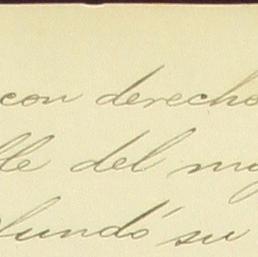 con derecho
lle del my
fundó su